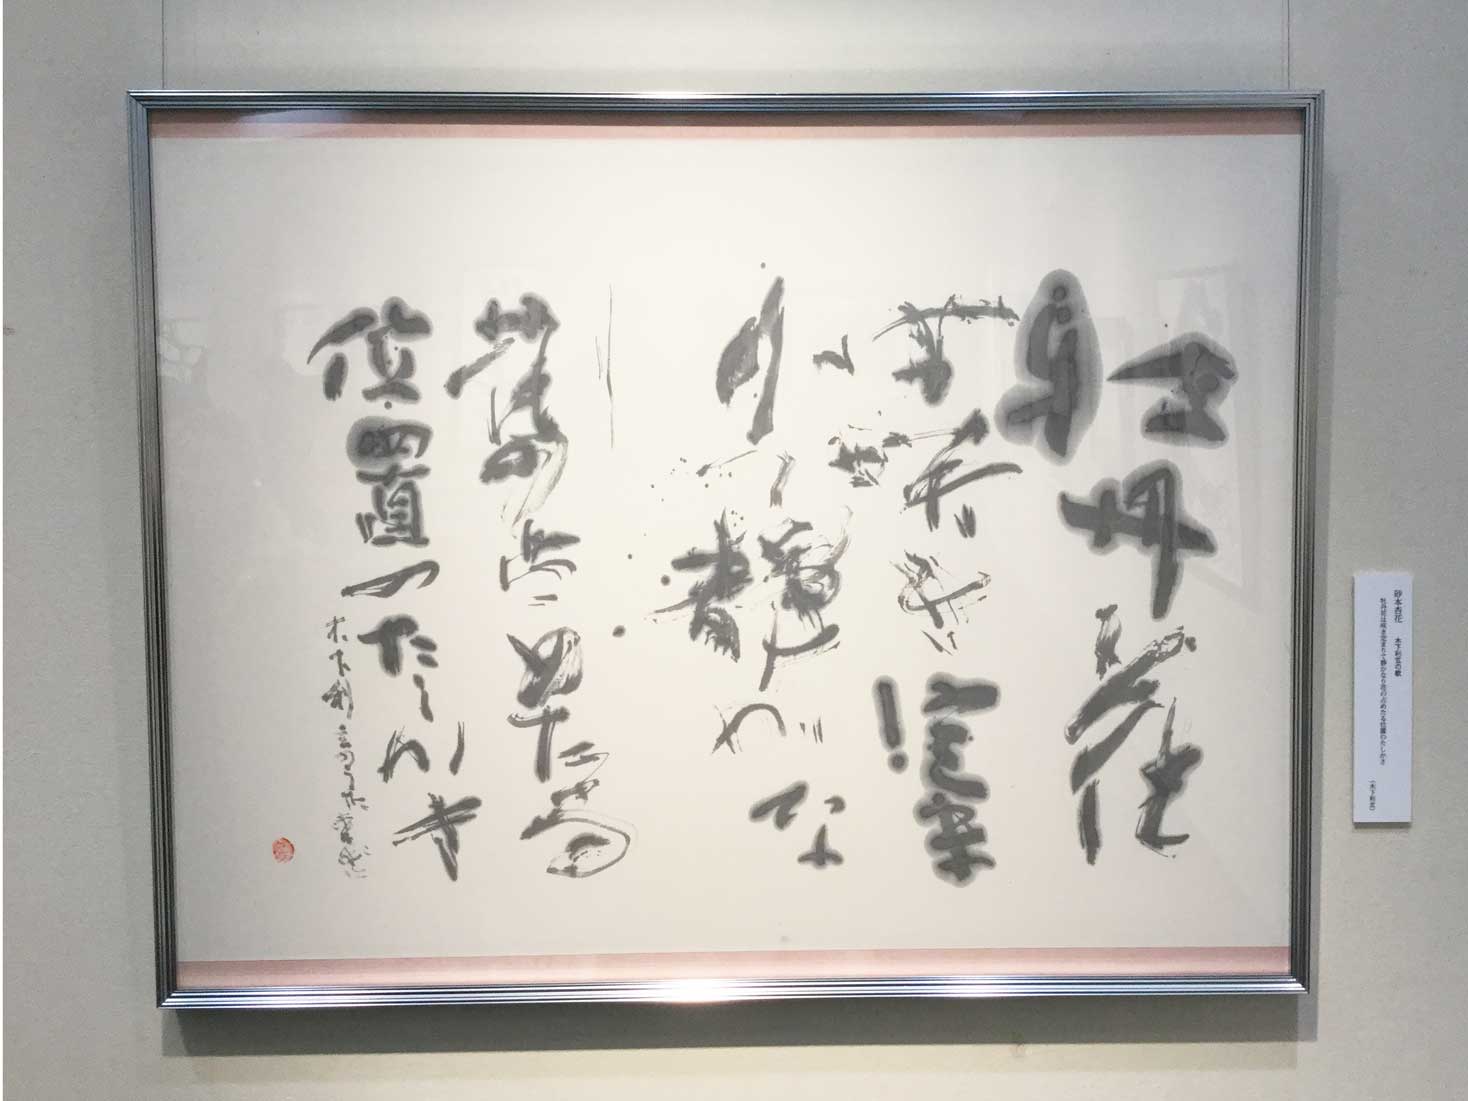 牡丹花
は咲き定
まりて静かな
り
花の占めたる
位置のたしかさ
木下利玄
砂本杏花　木下利玄の歌
牡丹花は咲き定まりて静かなり花の占めたる位置のたしかさ
（木下利玄）